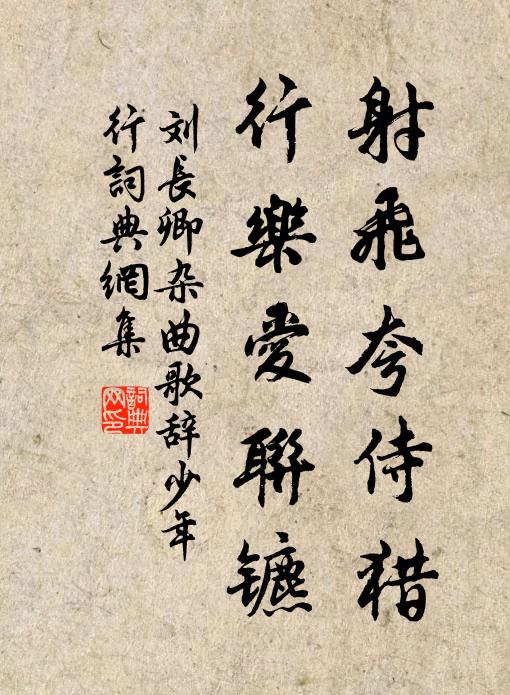 射飛夸侍猎
行樂愛聯镳
刘長卿杂曲歌辞少年
行詞典網集
詞典
网印